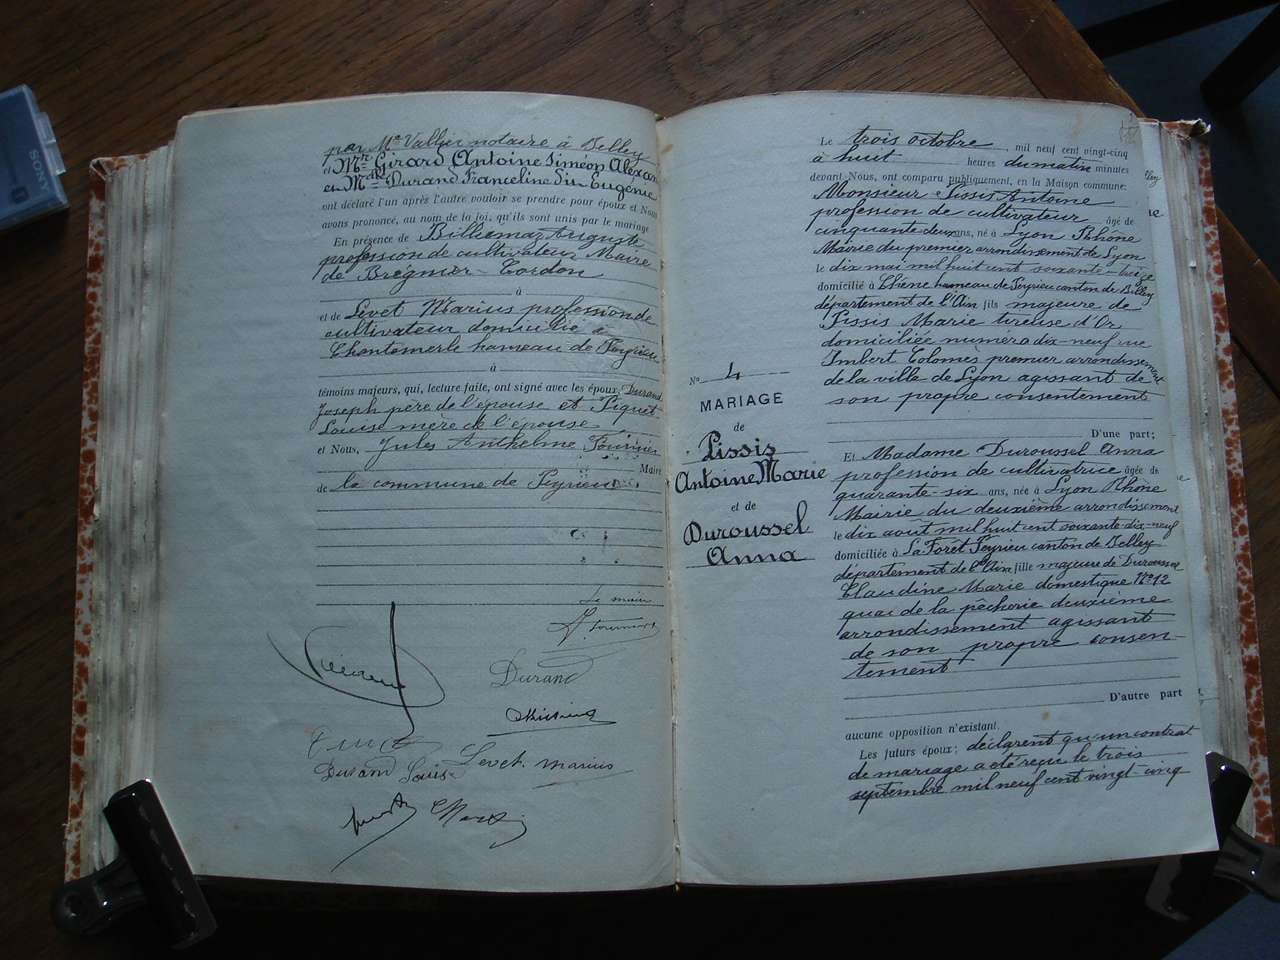 par Me Vallier notaire à Belley
et Mr Girard Antoine Siméon Alexan
en Mdlle Durand Franceline Eugénie
ont déclaré l'un après l'autre vouloir se prendre pour époux et Nous
avons prononcé, au nom de la loi, qu'ils sont unis par le mariage
En présence de Billiemaz Auguste
profession de cultivateur Maire
de Bregnier-Cordon
à
et de Levet Marius profession de
cultivateur domicilié à
Chantemerle hameau de Peyrieu
à
témoins majeurs, qui, lecture faite, ont signé avec les époux, Durand
Joseph père de l'épouse et Piquet
Louise mère de l'épouse
et Nous, Jules Anthelme
Maire
de la commune de Peyrieu
Le maire
Durand
Durand Louise
Levet marius
Le trois octobre mil neuf cent vingt-cinq
à huit heures du matin minutes
devant Nous, ont comparu publiquement, en la Maison commune:
Monsieur Pissis Antoine
profession de cultivateur âgé de
cinquante-deux ans, né à Lyon Rhône
Mairie du premier arrondissement de Lyon
le dix mai mil huit cent soixante-treize
domicilié à hameau de Peyrieu canton de Belley
département de l'Ain fils majeure de
Pissis Marie tireuse d'Or
domiciliée numéro dix-neuf rue
Imbert Colomès premier arrondissement
de la ville de Lyon agissant de
son propre consentement
D'une part;
No 4
MARIAGE
de
Pissis
Antoine Marie
et de
Duroussel
Anna
Et Madame Duroussel Anna
profession de cultivatrice âgée de
quarante-six ans, née à Lyon Rhône
Mairie du deuxième arrondissement
le dix août mil huit cent soixante-dix-neuf
domiciliée à La Forêt Peyrieu canton de Belley
département de l'Ain fille majeure de Duroussel
Claudine Marie domestique No 12
quai de la pêcherie deuxième
arrondissement agissant
de son propre consen-
tement
D'autre part
aucune opposition n'existant.
Les futurs époux; déclarent qu'un contrat
de mariage a été reçu le trois
septembre mil neuf cent vingt-cinq
SONY